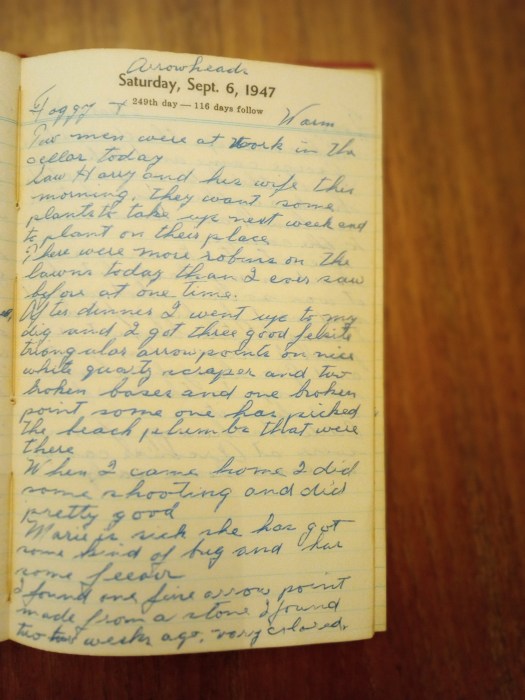 Arrowheads
Saturday, Sept. 6, 1947
249th day — 116 days follow
Foggy + Warm
Two men were at work in the
cellar today
Saw Harry and his wife this
morning, they want some
plants to take up next week and
to plant on their place
There were more robins on the
lawns today than I ever saw
before at one time.
After dinner I went up to my
dig and I got three good felsite
triangular arrowpoints on nice
white quartz scraper and two
broken bases and one broken
point some one has picked
the beach plumbs that were
there
When I came home I did
some shooting and did
pretty good
Marie is sick she has got
some kind of bug and has
some feever
I found one fine arrow point
made from a stone I found
two weeks ago, colored